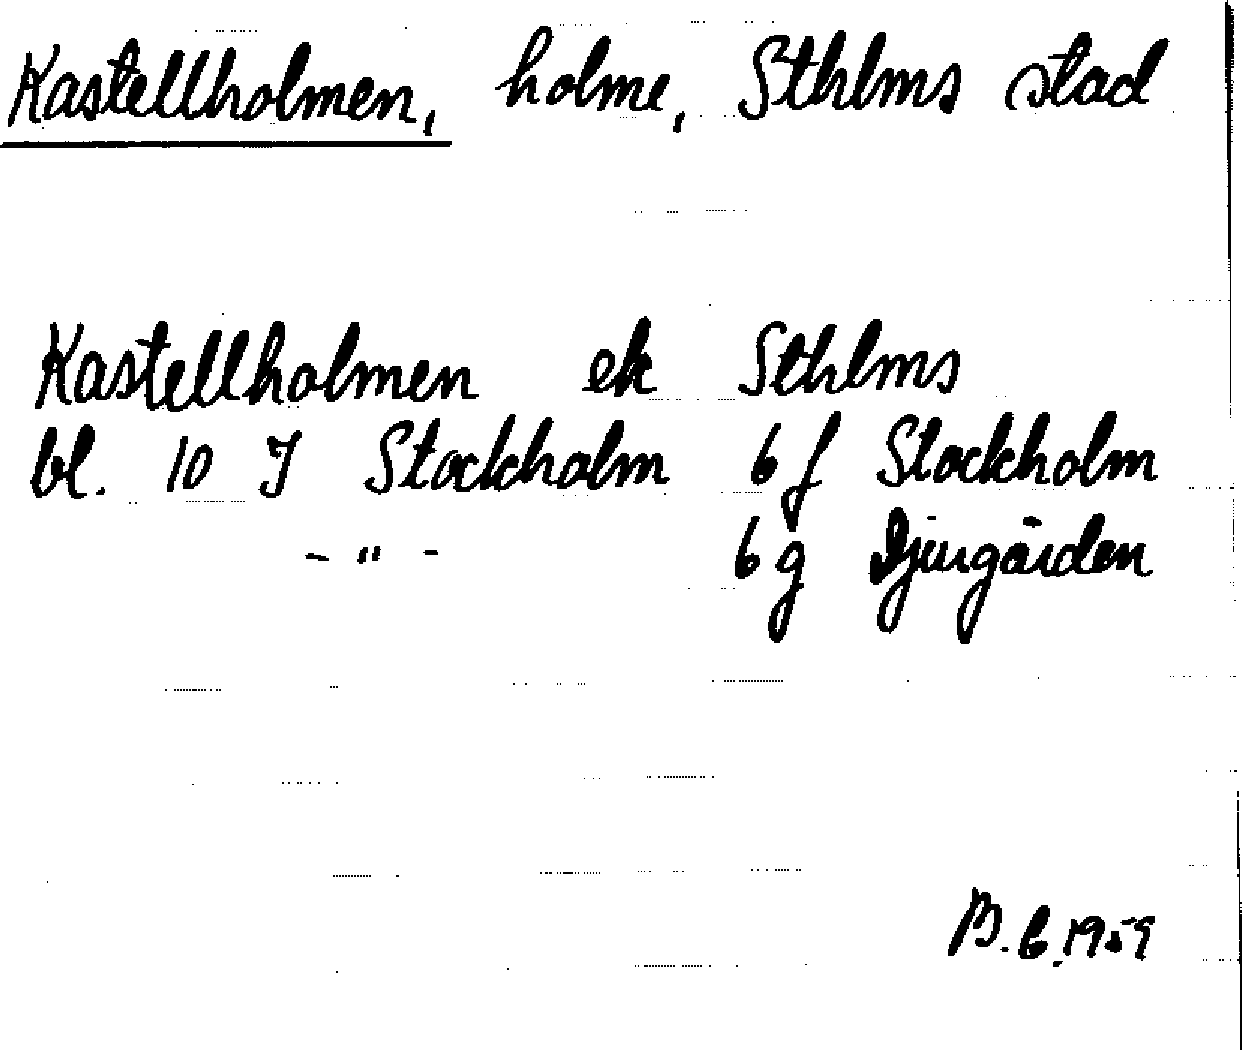 Kastellholmen, holme, Sthlms stad
Kastellholmen ek Sthlms
bl. 10 I Stockholm 6 f Stockholm
- " - 6 g Djurgården
B.G. 1959